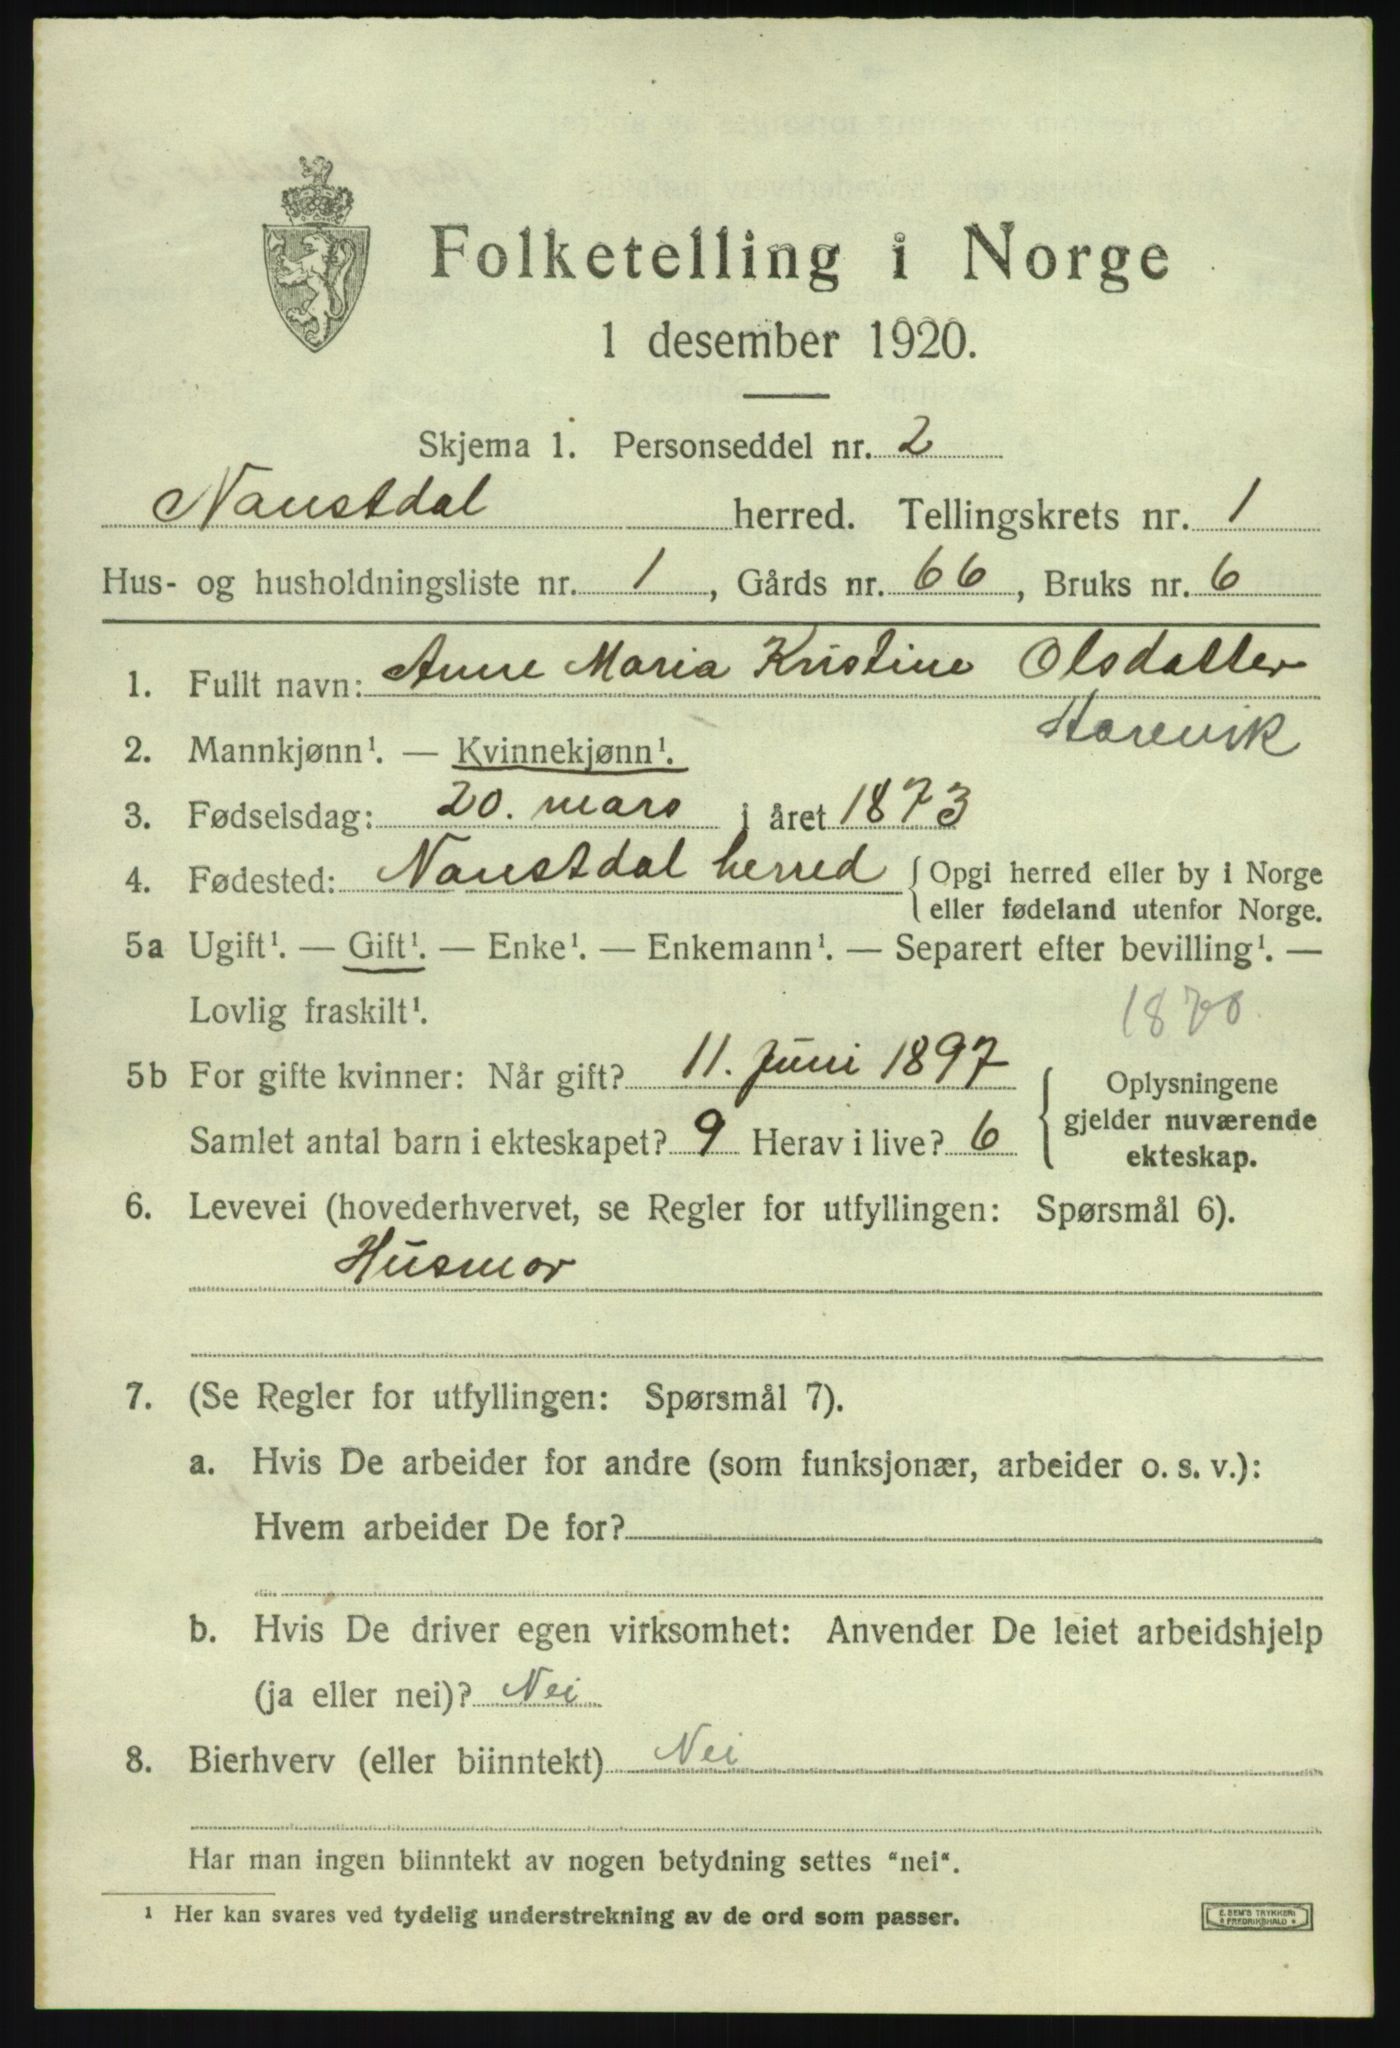 Folketelling i Norge
1 desember 1920.
Skjema 1. Personseddel nr. 2
Naustdal herred. Tellingskrets nr. 1
Hus- og husholdningsliste nr. 1, Gårds nr. 66, Bruks nr. 6
1. Fullt navn: Anne Maria Kristine Olsdatter
Horevik
2. Mannkjønn¹. — Kvinnekjønn¹.
3. Fødselsdag: 20. mars i året 1873
4. Fødested: Naustdal herred { Opgi herred eller by i Norge
eller fødeland utenfor Norge.
5a Ugift¹. — Gift¹. — Enke¹. — Enkemann¹. — Separert efter bevilling¹. —
Lovlig fraskilt¹.
5b For gifte kvinner: Når gift? 11. Juni 1897
Samlet antal barn i ekteskapet? 9 Herav i live? 6
{ Oplysningene
gjelder nuværende
ekteskap.
6. Levevei (hovederhvervet, se Regler for utfyllingen: Spørsmål 6).
Husmor
7. (Se Regler for utfyllingen: Spørsmål 7).
a. Hvis De arbeider for andre (som funksjonær, arbeider o. s. v.):
Hvem arbeider De for?
b. Hvis De driver egen virksomhet: Anvender De leiet arbeidshjelp
(ja eller nei)? Nei
8. Bierhverv (eller biinntekt) Nei
Har man ingen biinntekt av nogen betydning settes "nei".
¹ Her kan svares ved tydelig understrekning av de ord som passer.
E. SEM'S TRYKKERI
FREDRIKSHALD